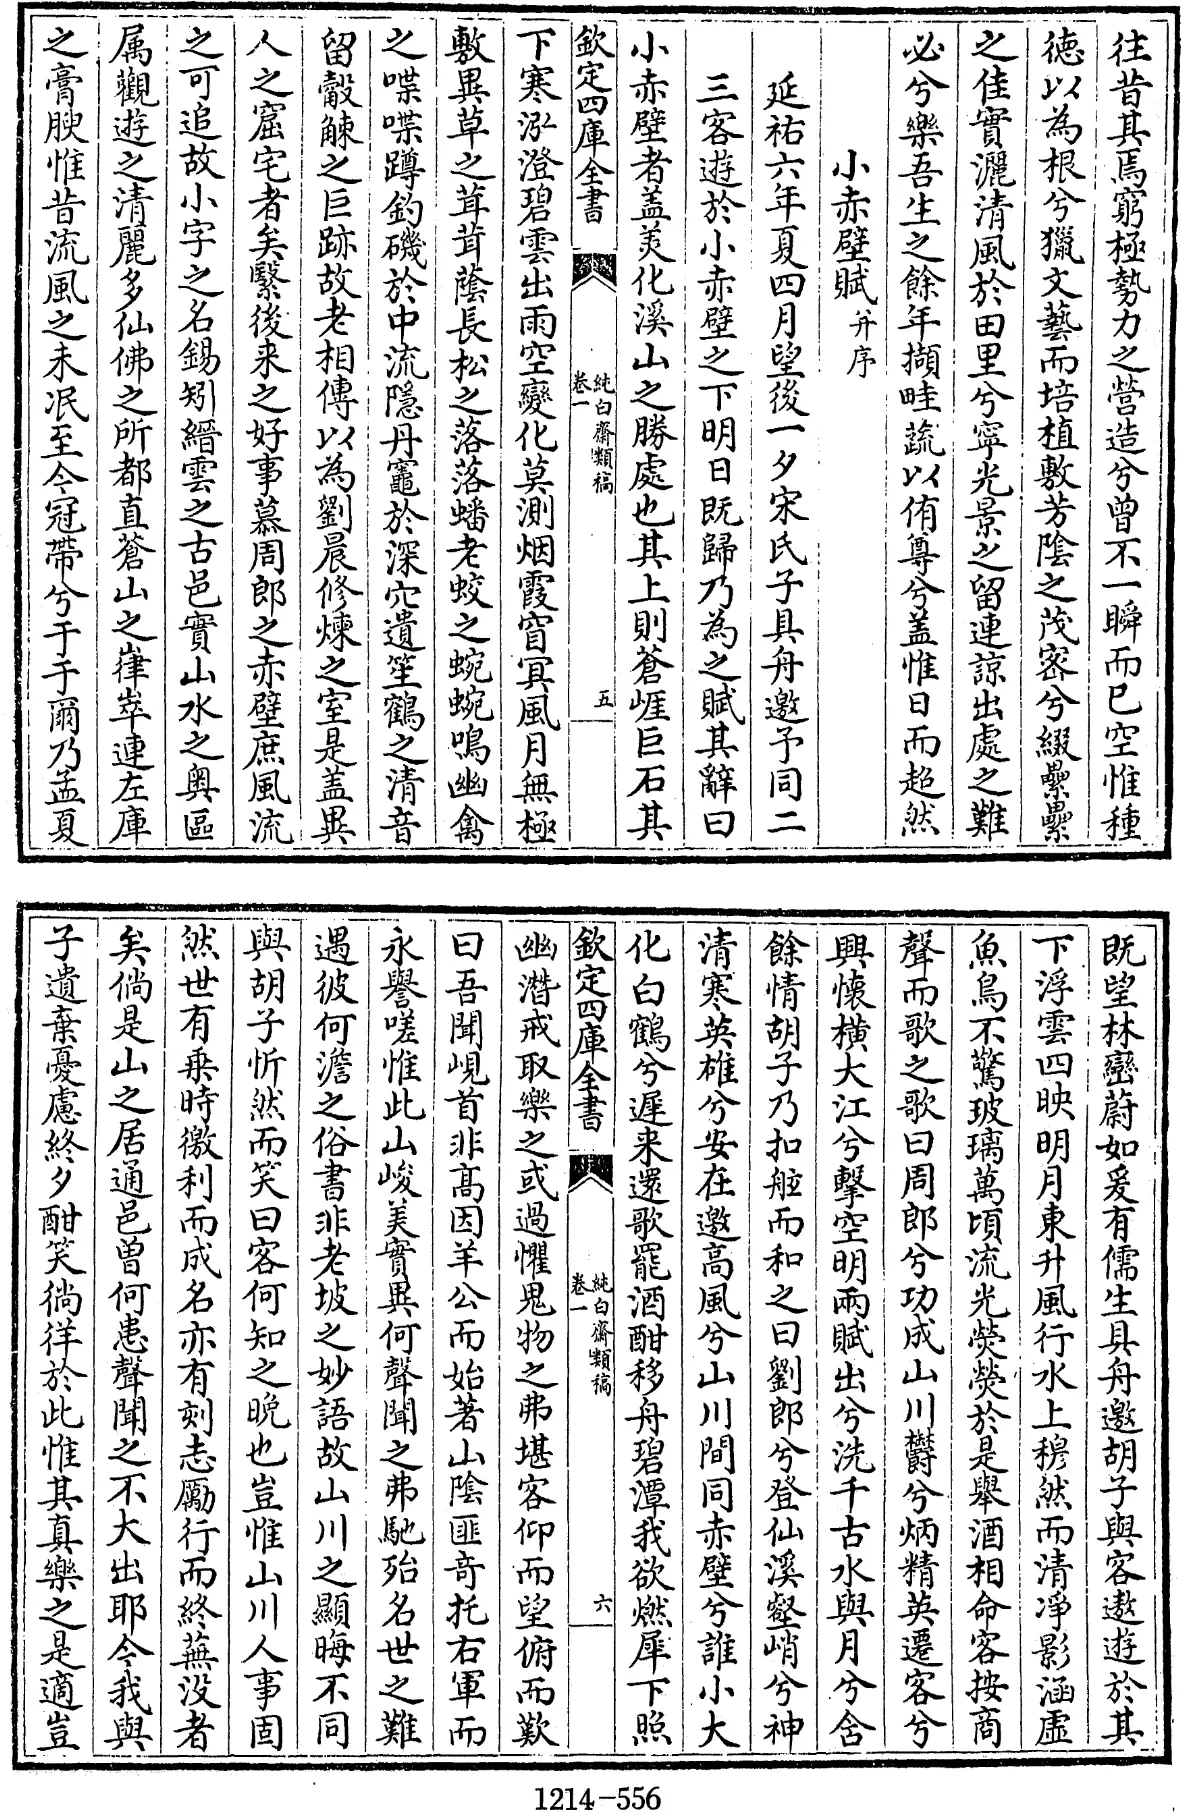 往昔其焉窮極勢力之營造兮曾不一瞬而已空惟種
德以為根兮獵文藝而培植敷芳陰之茂宻兮綴纍纍
之佳實灑清風於田里兮寧光景之留連諒出處之難
必兮樂吾生之餘年擷畦蔬以侑尊兮盖惟日而超然
小赤壁賦 并序
延祐六年夏四月望後一夕宋氏子具舟邀予同二
三客遊於小赤壁之下明日既歸乃為之賦其辭曰
小赤壁者盖羙化溪山之勝處也其上則蒼崕巨石其
欽定四庫全書 純白齋類稿 卷一 五
下寒泓澄碧雲出雨空變化莫測烟霞窅冥風月無極
敷異草之茸茸䕃長松之落落蟠老蛟之蜿蜿鳴幽禽
之喋喋蹲釣磯於中流隱丹竈於深穴遺笙鶴之清音
留觳觫之巨跡故老相傳以為劉晨修煉之室是盖異
人之窟宅者矣繄後来之好事慕周郎之赤壁庶風流
之可追故小字之名錫矧縉雲之古邑實山水之奥區
属觀遊之清麗多仙佛之所都直蒼山之嵂崒連左庫
之膏腴惟昔流風之未泯至今冠帶兮于于爾乃孟夏
既望林巒蔚如爰有儒生具舟邀胡子與客遨遊於其
下浮雲四映明月東升風行水上穆然而清凈影涵虚
魚鳥不驚玻璃萬頃流光熒熒於是舉酒相命客按商
聲而歌之歌曰周郎兮功成山川欝兮炳精英遷客兮
興懷横大江兮擊空明兩賦出兮洗千古水與月兮含
餘情胡子乃扣舷而和之曰劉郎兮登仙溪壑峭兮神
清寒英雄兮安在邀高風兮山川間同赤壁兮誰小大
化白鶴兮遲来還歌罷酒酣移舟碧潭我欲燃犀下照
欽定四庫全書 純白齋類稿 卷一 六
幽濳戒取樂之或過懼鬼物之弗堪客仰而望俯而歎
曰吾聞峴首非髙因羊公而始著山隂匪竒托右軍而
永譽嗟惟此山峻美實異何聲聞之弗馳殆名世之難
遇彼何澹之俗書非老坡之妙語故山川之顯晦不同
與胡子忻然而笑曰客何知之晩也豈惟山川人事固
然世有乗時徼利而成名亦有刻志勵行而終蕪没者
矣倘是山之居通邑曽何患聲聞之不大出耶今我與
子遺棄憂慮終夕酣笑徜徉於此惟其真樂之是適豈
1214-556